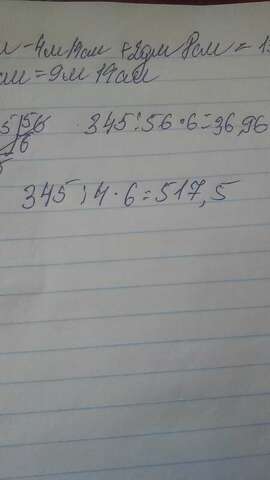 м - 4м 14см + 2дм 8см = 1
см = 9м 14см
5 | 56
345 : 56 · 6 = 36,96
345 : 4 · 6 = 517,5